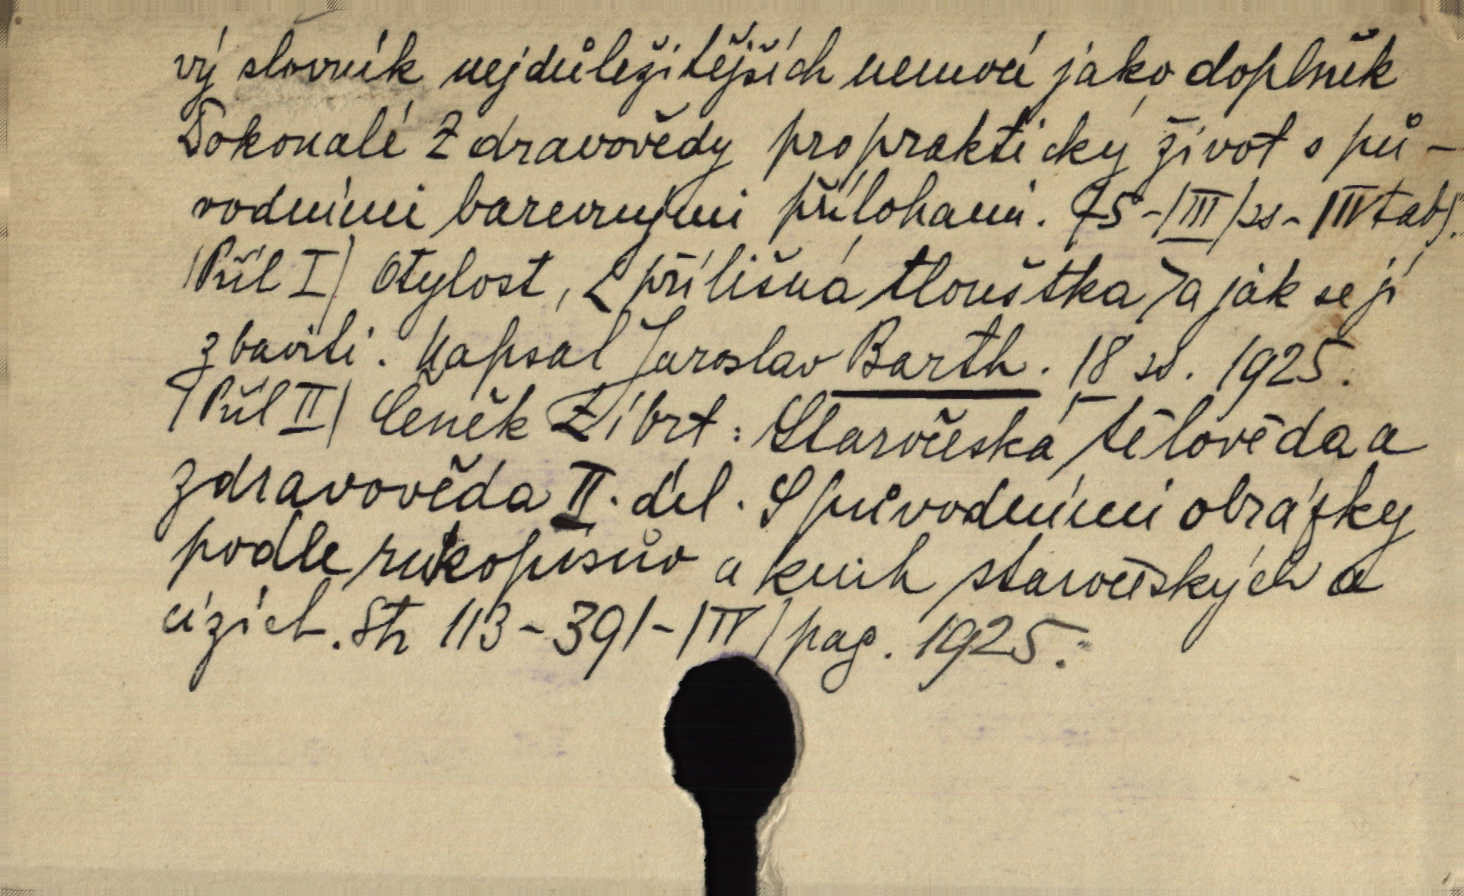 vý slovník nejdůležitějších nemocí jako doplněk
Dokonalé Zdravovědy pro praktický život s pů-
vodními barevnými přílohami. 75-/III/ss-IIItab/.
/Příl I/ Otylost, <přílišná tloušťka> a jak se jí
zbaviti. Napsal Jaroslav Barth. 18 ss. 1925.
/Příl II/ Čeněk Zíbrt: Staročeská tělověda a
zdravověda II. díl. S původními obrázky
podle rukopisův a knih staročeských a
cizích. Str 113-391-/IV/ pag. 1925.